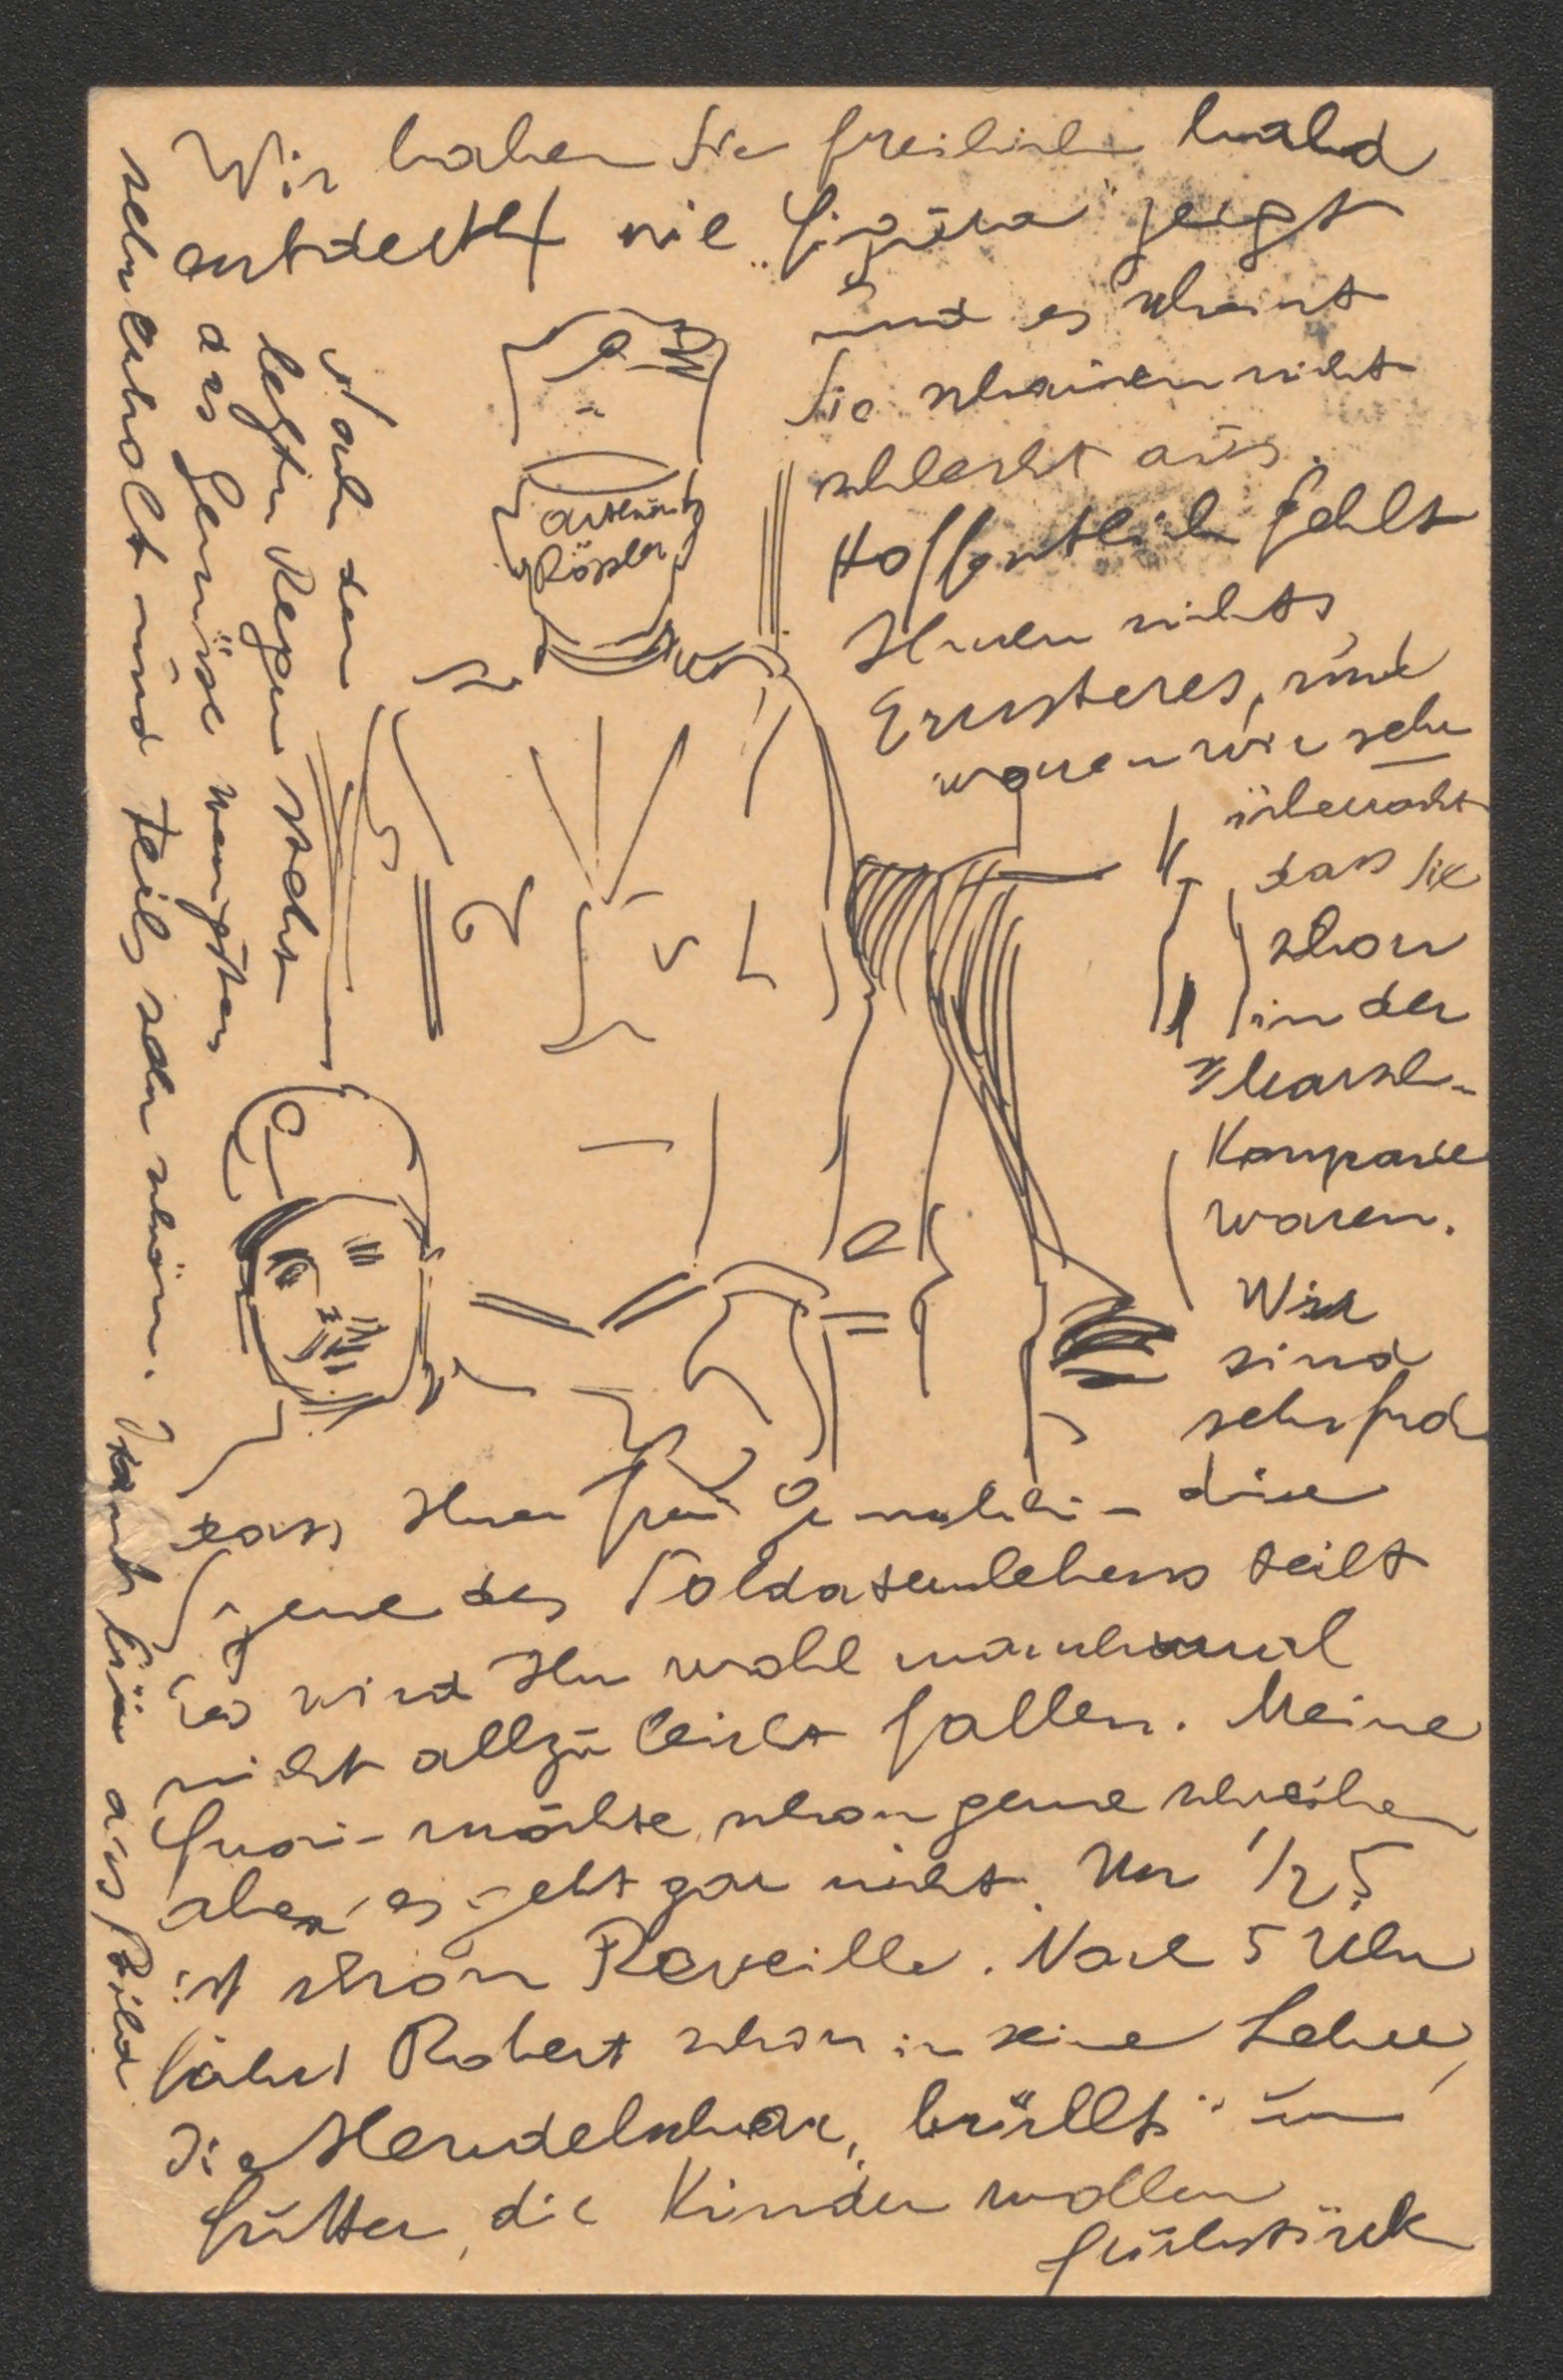 Wir haben Sie freilich bald
entdeckt wie „Figura" zeigt
und es scheint
Sie schauen nicht
schlecht aus.
Hoffentlich fehlt
Ihnen nichts
Ernsteres, und
waren wir sehr
überrascht
dass Sie
schon
in der
Marsch-
Kompanie
waren.
Wir
sind
sehr froh
dass Ihre Frau Gemahlin diese
Szene des Soldatenlebens teilt
es wird Ihr wohl manchmal
nicht allzu leicht fallen. Meine
Frau möchte schon gerne schreiben
aber es geht gar nicht. Um 1/2 5
ist schon Reveille. Nach 5 Uhr
fährt Robert schon in seine Lehre,
die Hendelschar „brüllt" um
Futter, die Kinder wollen
Frühstück
Arthur
Rössler
Nach den
letzten Regen steht
das Gemüse wenigstens
sehr erholt und teils sehr schön.